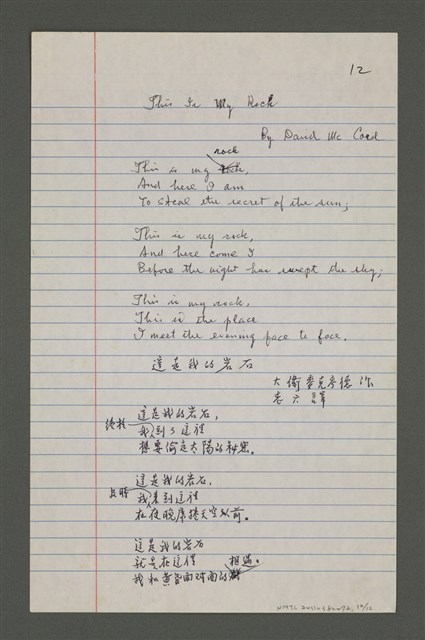 12
This Is My Rock
By David Mc Cord
rock
This is my
And here I am
To steal the secret of the sun;
This is my rock,
And here come I
Before the night has swept the sky;
This is my rock,
This is the place
I meet the evening face to face.
這是我的岩石
大衛麥克考德作
譯
這是我的岩石，
我到了這裡
想要偷走太陽的秘密。
這是我的岩石，
我來到這裡
在夜晚席捲天空以前。
這是我的岩石
就是在這裡 相遇。
我和黃昏面對面的